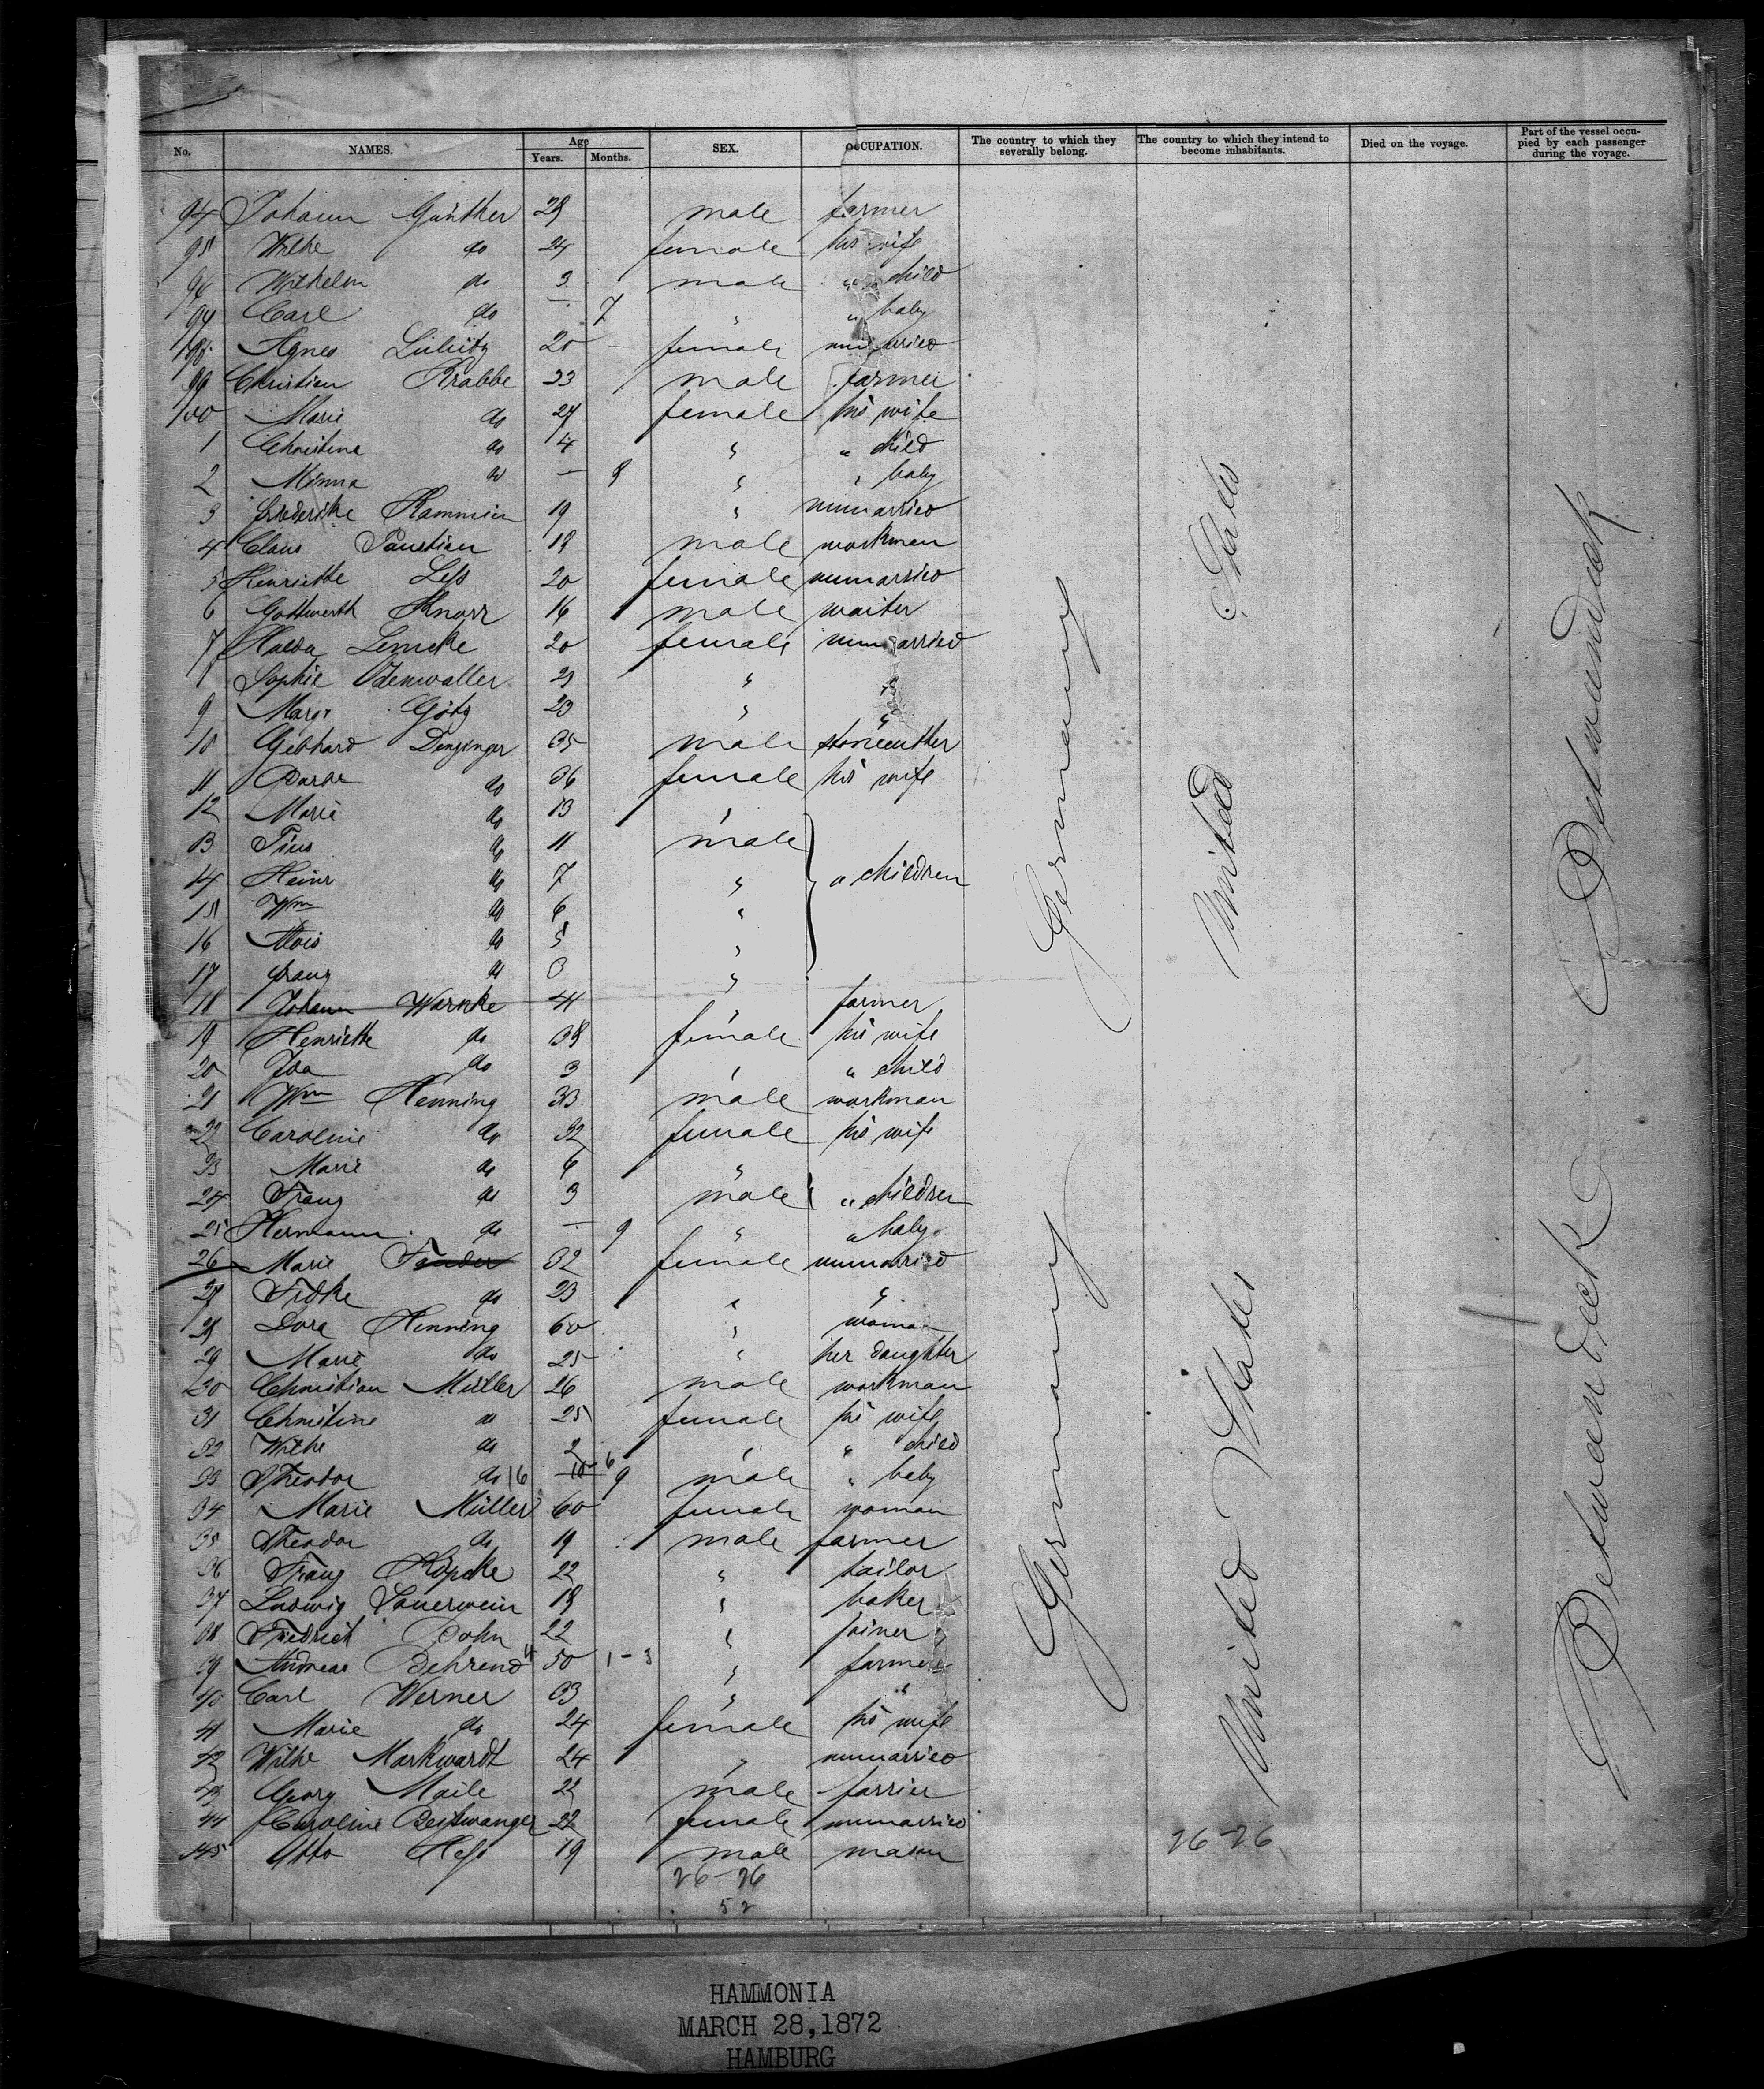 No. NAMES. Age SEX. OCCUPATION. The country to which they severally belong. The country to which they intend to become inhabitants. Died on the voyage. Part of the vessel occupied by each passenger during the voyage.
Years. Months.
94 Johann Günther 28 male farmer
95 Wilhe do 24 female his wife
96 Wilhelm do 3 male " child
97 Carl do — 7 " " baby
98 Agnes 20 female unmarried
99 Christian Krabbe 33 male farmer
100 Marie do 27 female his wife
1 Christine do 4 " " child
2 Minna do — 8 " " baby
3 Friederike Kammin 19 " unmarried
4 Claus Paustian 18 male workman
5 Henriette Less 20 female unmarried
6 Gottwerth Knorr 16 male waiter
7 Hulda Lemcke 20 female unmarried
8 Sophie Odenwaller 29 " "
9 Margr Götz 23 " "
10 Gebhard Denzinger 35 male stonecutter
11 Barbr do 36 female his wife
12 Marie do 13 "
13 Pius do 11 male
14 Heinr do 7 " " children
15 Wm do 6 "
16 Alois do 5 "
17 Franz do 3 "
18 Johann Warnke 41 " farmer
19 Henriette do 38 female his wife
20 Ida do 3 " " child
21 Wm Henning 33 male workman
22 Caroline do 32 female his wife
23 Marie do 6 "
24 Franz do 3 male " children
25 Hermann do — 9 " " baby
26 Marie 32 female unmarried
27 do 23 " "
28 Dora Henning 60 " woman
29 Marie do 25 " her daughter
30 Christian Müller 26 male workman
31 Christine do 25 female his wife
32 Wilhe do 2 " " child
33 Theodor do 16 10-6 9 male " baby
34 Marie Müller 60 female woman
35 Theodor do 19 male farmer
36 Franz Köpcke 22 " tailor
37 Ludwig Sauerwein 18 " baker
38 Friedrich Bohn 22 " joiner
39 Andreas Behrend 50 1-3 " farmer
40 Carl Werner 33 " "
41 Marie do 24 female his wife
42 Wilhe Markwardt 24 " unmarried
43 Georg Maile 22 male farrier
44 Caroline Beisswanger 22 female unmarried
145 Otto Hess 19 male mason
26-26
52
Germany
Germany
United States
United States
26-26
Between Deck
Between Deck
HAMMONIA
MARCH 28, 1872
HAMBURG